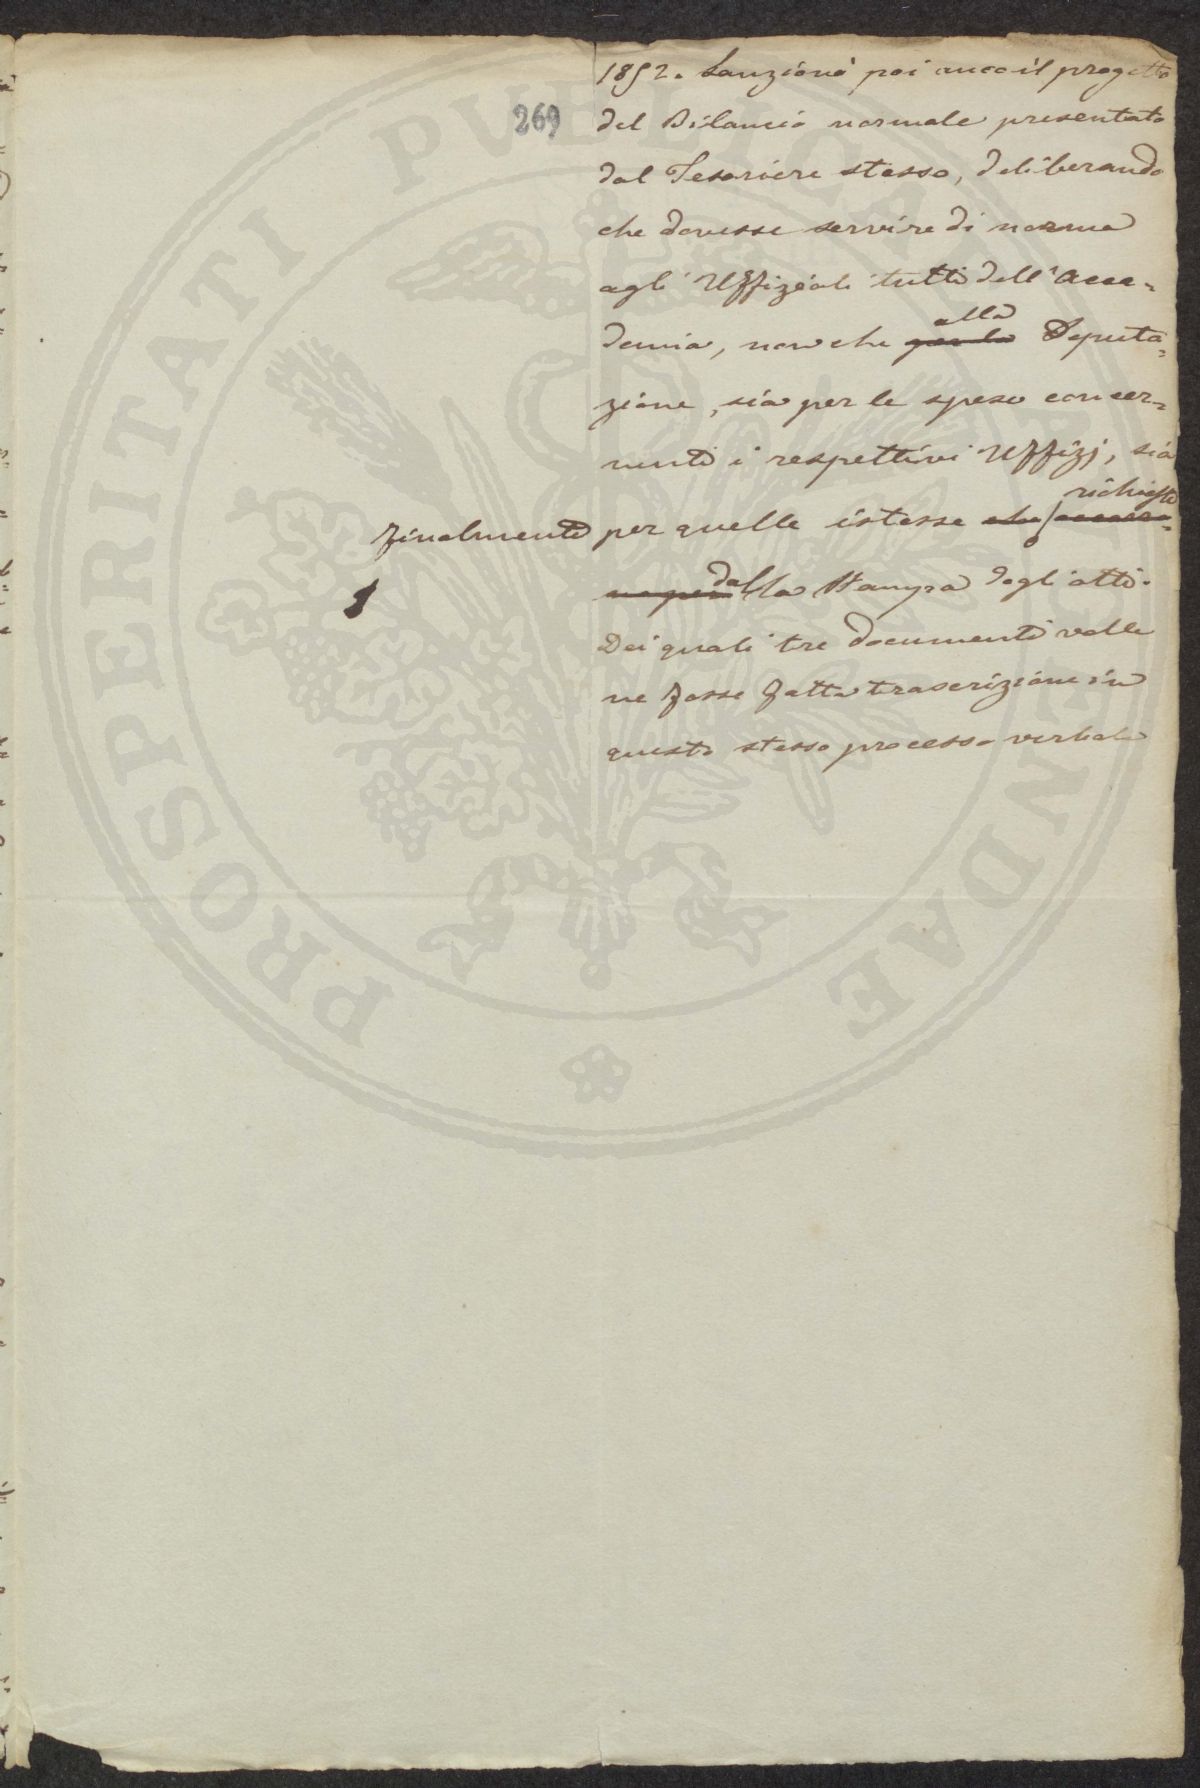 269
1852. Sanzionò poi anco il progetto
del Bilancio normale presentato
dal Tesoriere stesso, deliberando
che dovesse servire di norma
agli Uffiziali tutti dell'Acca=
demia, non che per la alla Deputa=
zione, sia per le spese concer=
nenti i respettivi Uffizj, sia
Finalmente per quelle istesse che richieste
dalla Stampa degli atti.
Dei quali tre documenti volle
ne fosse fatta trascrizione in
questo stesso processo verbale
PROSPERITATI PUBLICAE AUGENDAE